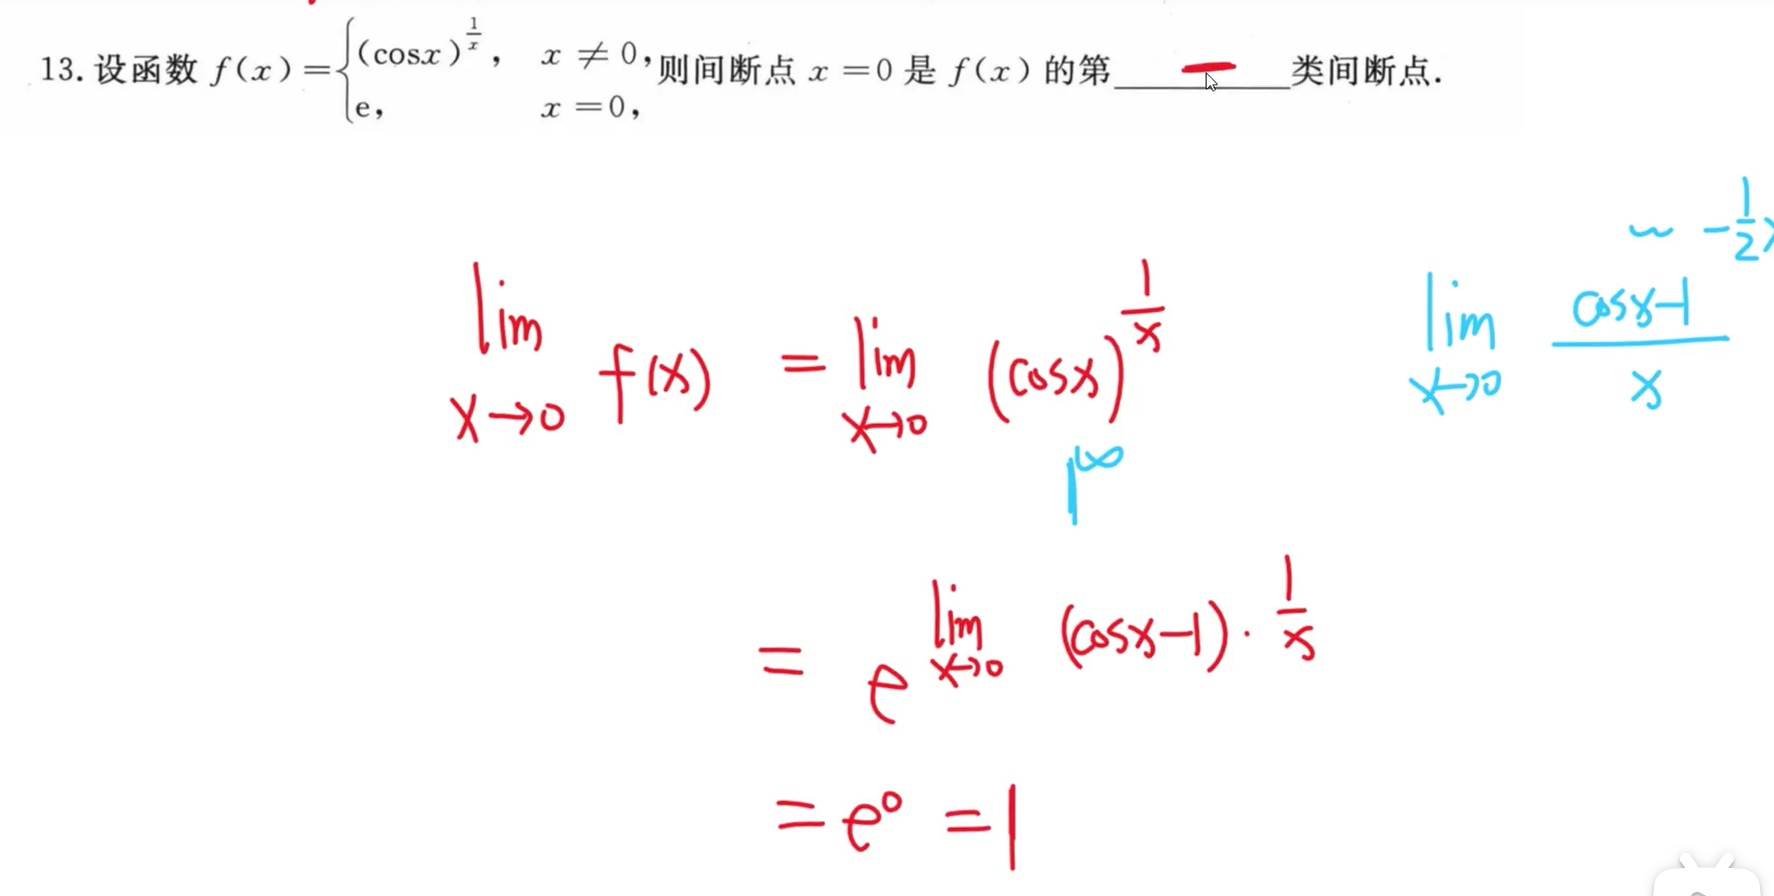 13. 设函数 f(x)={(cosx)^{1/x}, x≠0, 则间断点 x=0 是 f(x) 的第 一 类间断点.
e, x=0,
~ -1/2
lim x→0 f(x) = lim x→0 (cosx)^{1/x}
lim x→0 (cosx-1)/x
1^∞
= e^{lim x→0 (cosx-1)·1/x}
= e^0 = 1